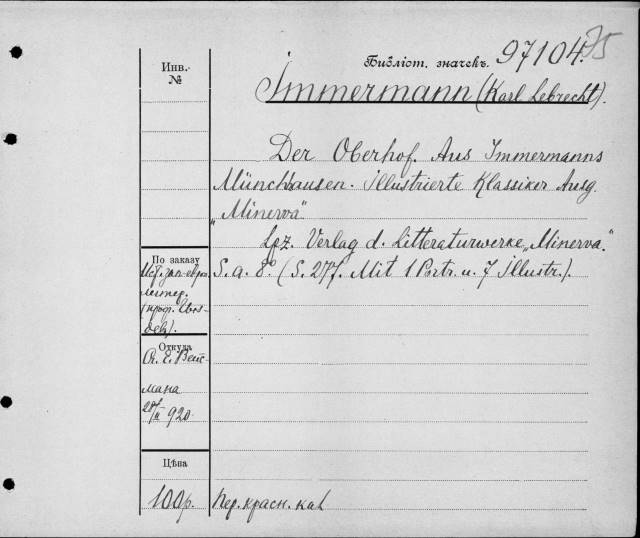 Библіот. значекъ. 97104. 75
Инв.
№
Immermann (Karl Lebrecht).
Der Oberhof. Aus Immermanns
Münchhausen. Illustrierte Klassiker Ausg.
„Minerva"
Lpz. Verlag d. Litteraturwerke „Minerva."
S. a. 8° (S. 277. Mit 1 Portr. u. 7 Illustr.).
По заказу
Ист. зап.-евро.
(проф.
Откуда
Е. Вейс-
мана
II 920
Цѣна
100 р.
Пер. красн. кал